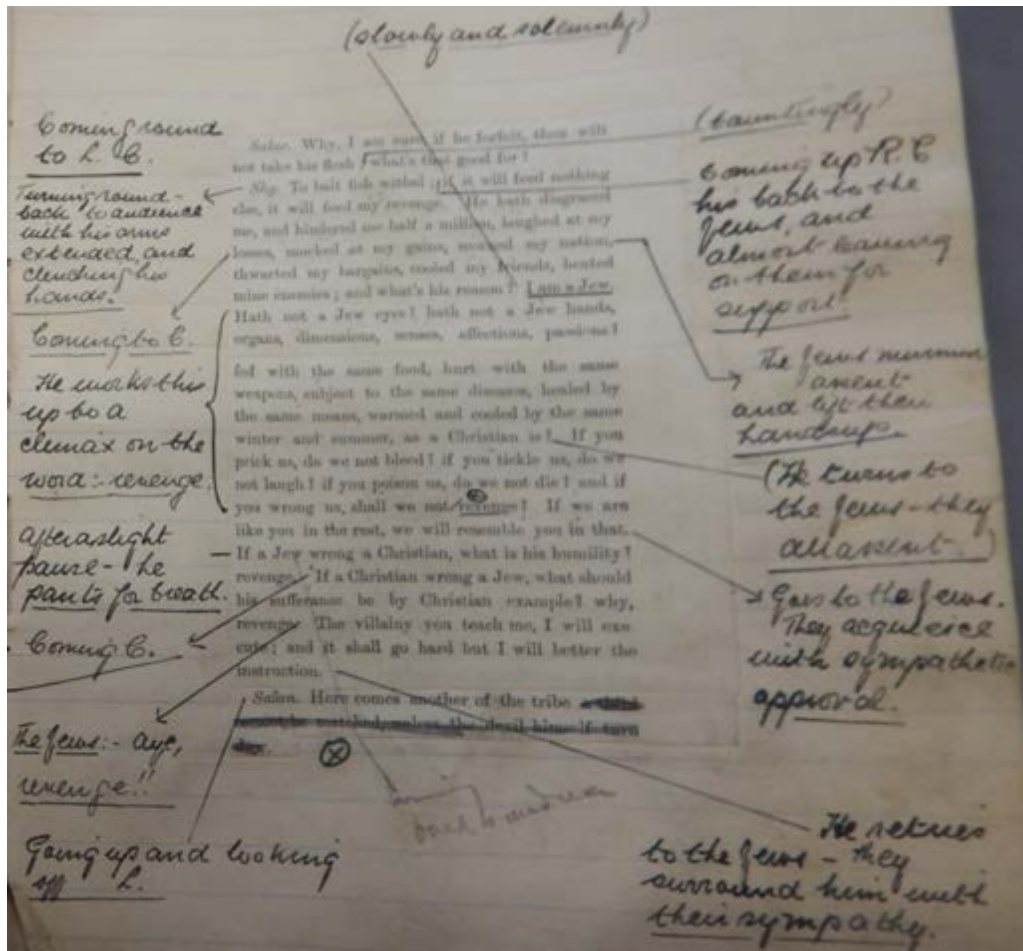 (slowly and solemnly)
Coming round
to L. C.
Turning round -
back to audience
with his arms
extended, and
clenching his
hands.
Coming to C.
He works this
up to a
climax on the
word:- revenge.
after a slight
pause - he
pants for breath.
Coming C.
The Jews:- aye,
revenge!!
Going up and looking
off L.
Salar. Why, I am sure, if he forfeit, thou wilt
not take his flesh; what's that good for?
Shy. To bait fish withal; if it will feed nothing
else, it will feed my revenge. He hath disgraced
me, and hindered me half a million, laughed at my
losses, mocked at my gains, scorned my nation,
thwarted my bargains, cooled my friends, heated
mine enemies; and what's his reason? I am a Jew.
Hath not a Jew eyes? hath not a Jew hands,
organs, dimensions, senses, affections, passions?
fed with the same food, hurt with the same
weapons, subject to the same diseases, healed by
the same means, warmed and cooled by the same
winter and summer, as a Christian is? If you
prick us, do we not bleed? if you tickle us, do we
not laugh? if you poison us, do we not die? and if
you wrong us, shall we not revenge? If we are
like you in the rest, we will resemble you in that.
If a Jew wrong a Christian, what is his humility?
revenge. If a Christian wrong a Jew, what should
his sufferance be by Christian example? why,
revenge. The villainy you teach me, I will exe-
cute; and it shall go hard but I will better the
instruction.
Salan. Here comes another of the tribe
the devil himself turn
(tauntingly)
Coming up R. C
his back to the
Jews, and
almost leaning
on them for
support.
The Jews murmur
assent
and lift their
hands up.
(He turns to
the Jews - they
all assent.)
Goes to the Jews.
They acquiesce
with sympathetic
approval.
back to
He retires
to the Jews - they
surround him with
their sympathy.